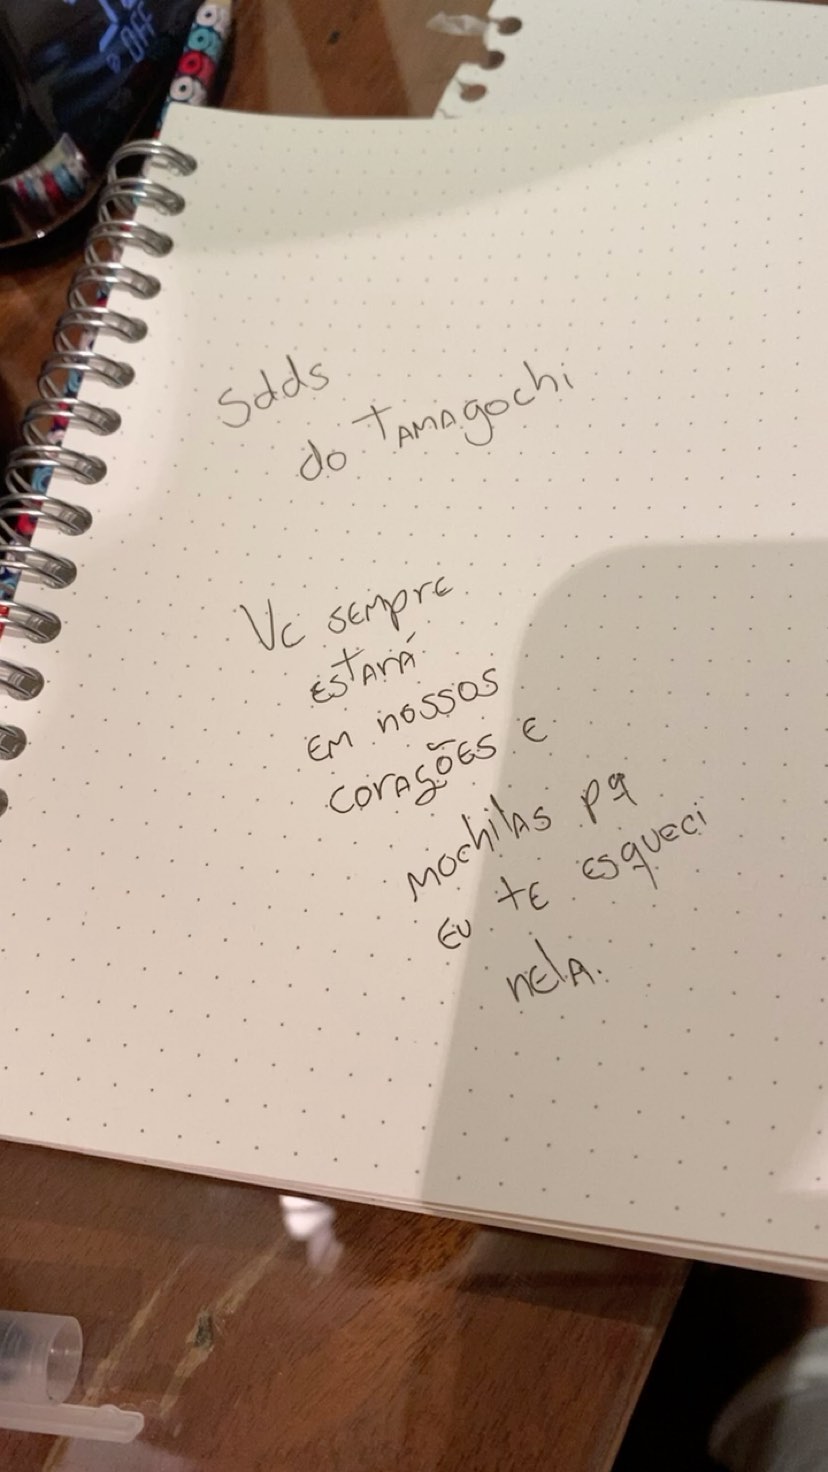 OFF
Sdds
do TAMAgochi
Vc sempre
estará
em nossos
corações e
mochilas pq
eu te esqueci
nela.